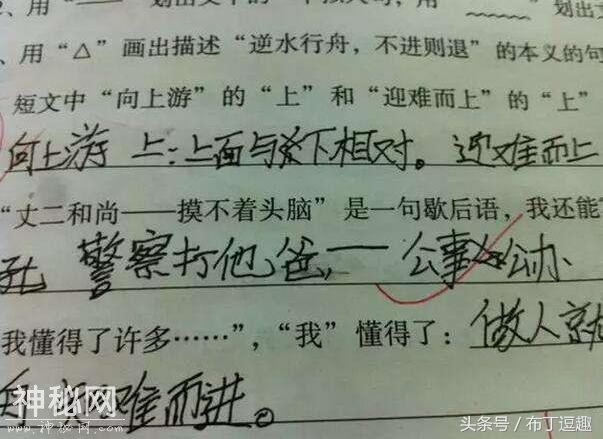 、用“ 划出文中的 用“ ”划出文
、用“△”画出描述“逆水行舟，不进则退”的本义的句
短文中“向上游”的“上”和“迎难而上”的“上”
向上游 上：上面与下相对。迎难而上
“丈二和尚——摸不着头脑”是一句歇后语，我还能
警察打他爸，——公事公办
我懂得了许多……”，“我”懂得了：做人就
难而进。
神秘网
www.shenmiw.com
头条号／布丁逗趣